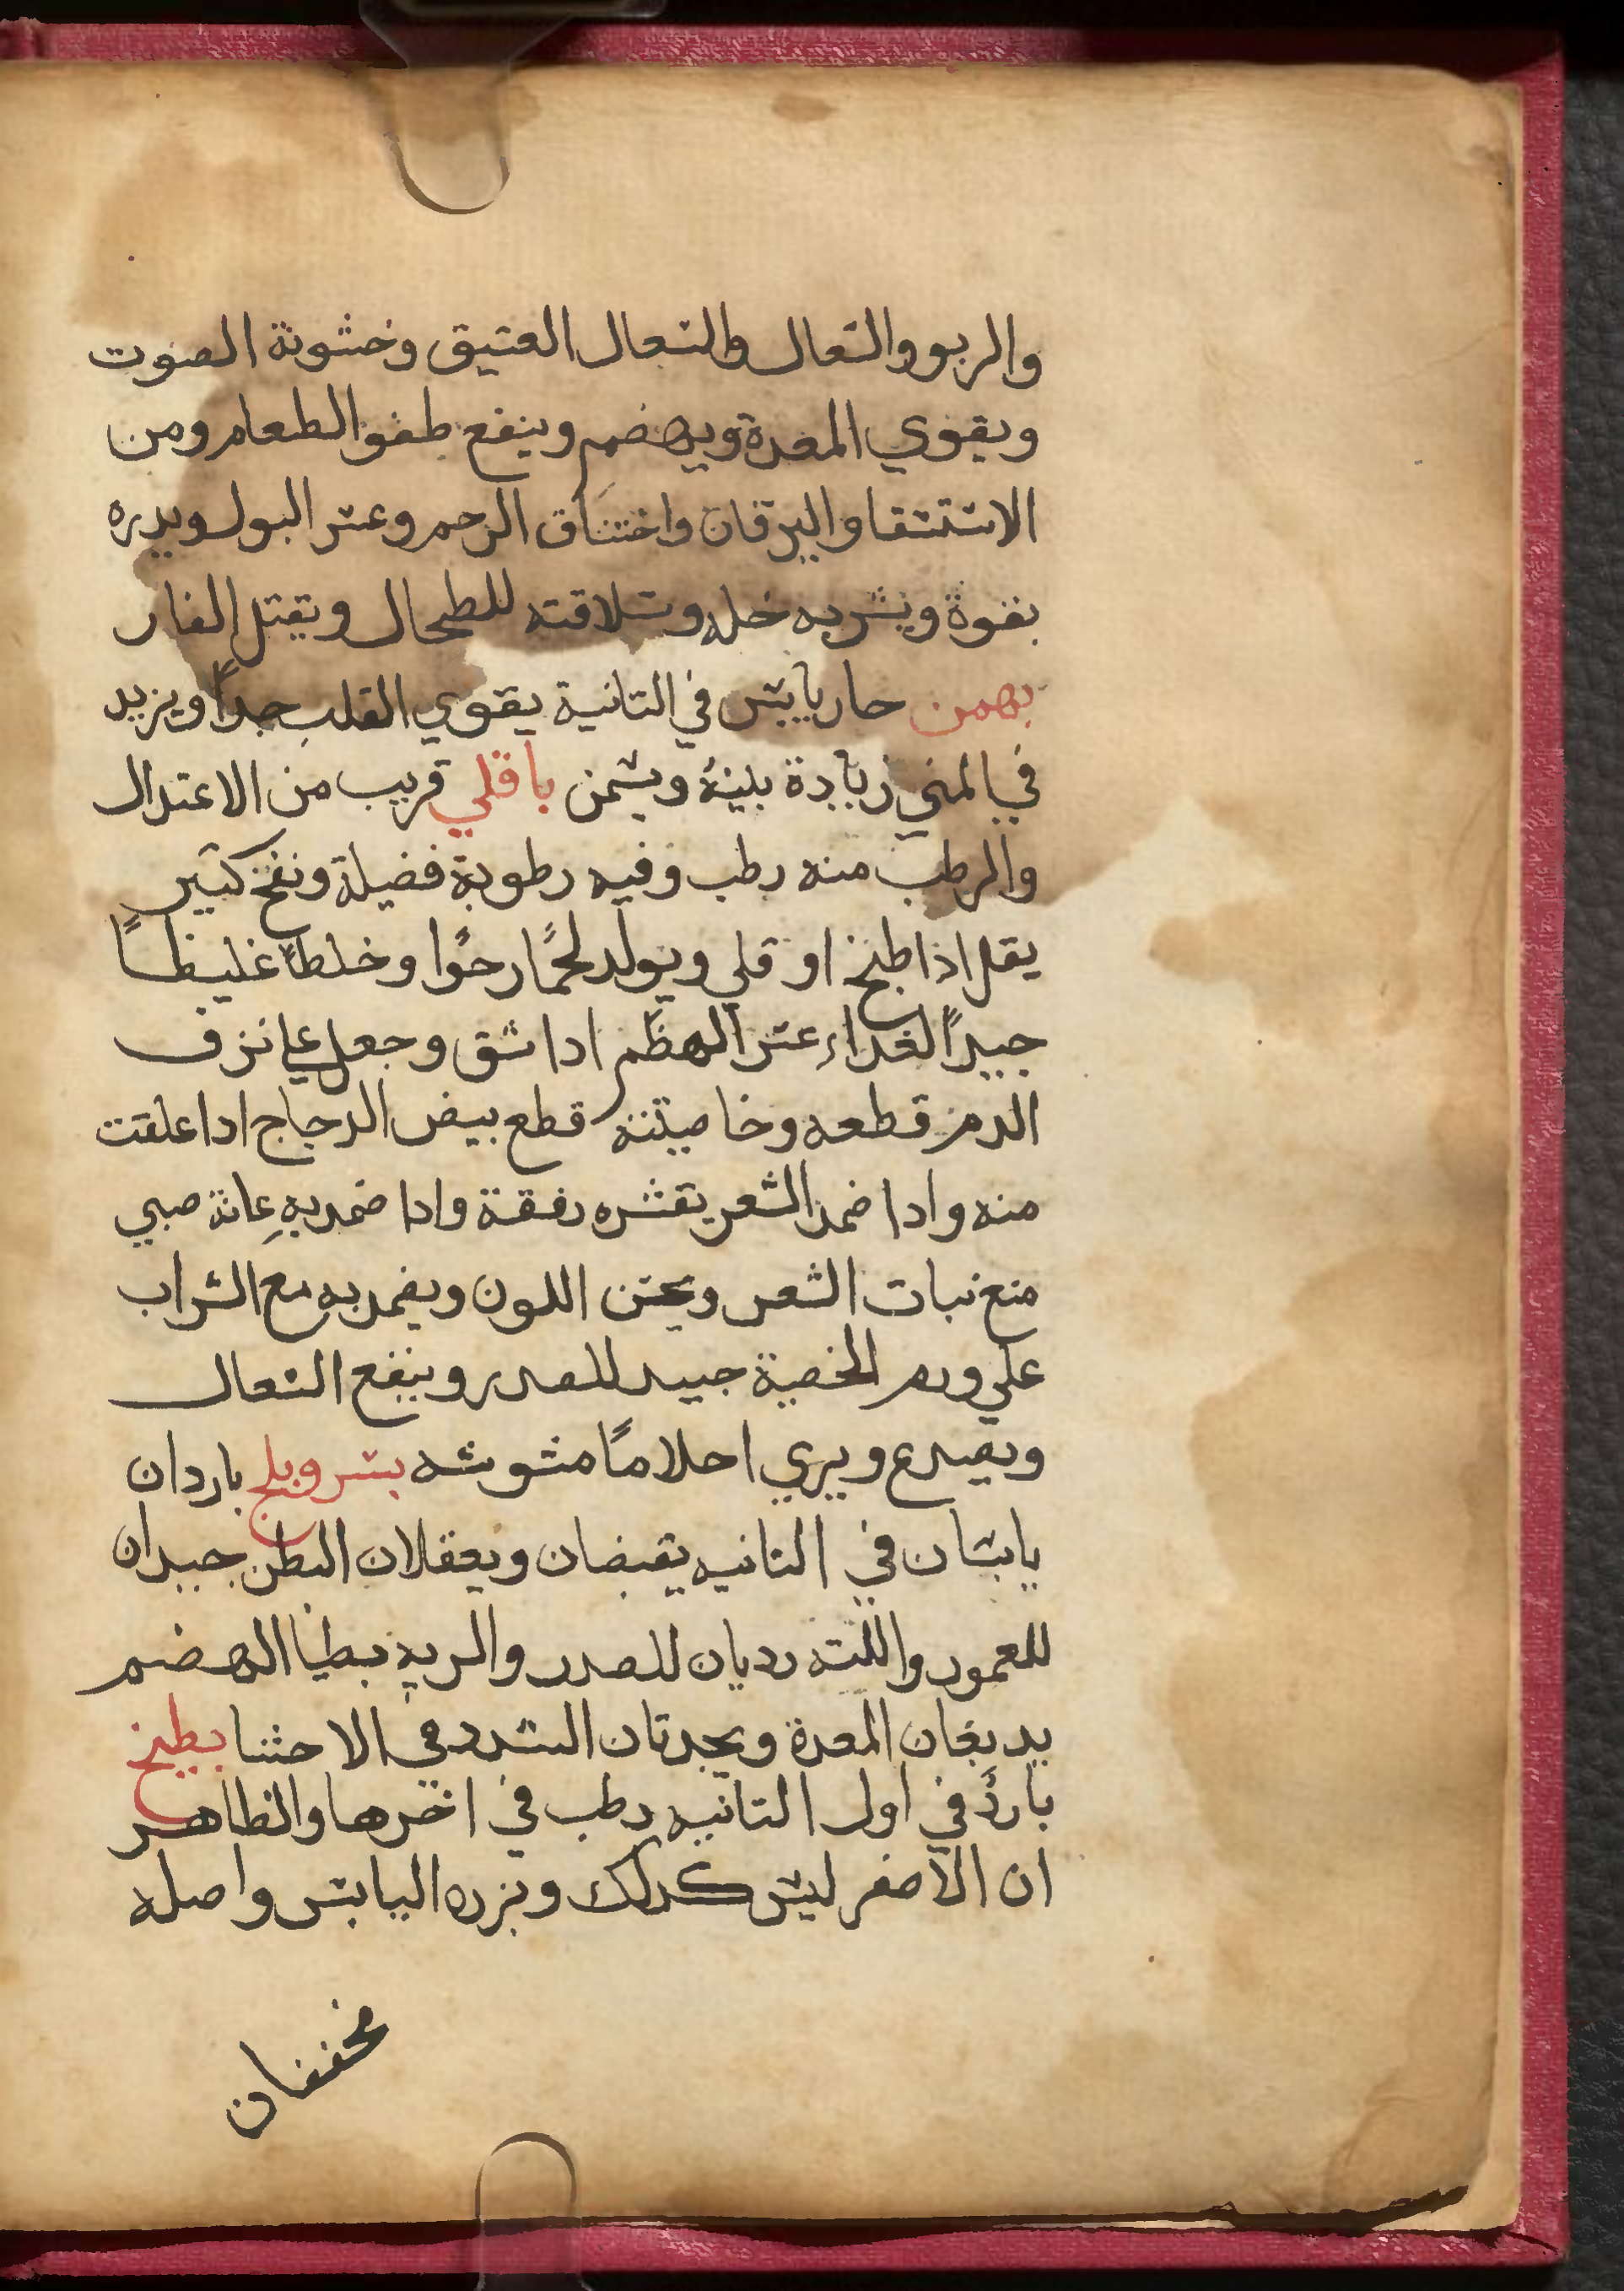 والربو والسعال والسعال العتيق وخشونة الصوت
ويقوي المعدة ويهضم وينفع طفو الطعام ومن
الاستسقا واليرقان واختناق الرحم وعسر البول ويدره
بقوة ويشربه خله وسلاقته للطحال ويقتل الفار
بهمن حار يابس في التانية يقوي القلب جداً ويزيد
في المني زيادة بينهُ ويسمن باقلي قريب من الاعتدال
والرطب منه رطب وفيه رطوبة فضيلة ونفخ كتير
يقل اذا طبخ او قلي ويولد لحمًا رخوًا وخلطاً غليظاً
جيداً لغداء عسر الهظم ادا شق وجعل علي نزف
الدم قطعه وخاصيته قطع بيض الدجاج ادا علفت
منه وادا ضمد الشعر بقشره رققة وادا ضمد بهِ عانة صبي
منع نبات الشعر ويحسن اللون ويضمد به مع الشراب
علي ورم الخصية جيد للصدر وينفع السعال
ويصدع ويري احلامًا مشوشه بسر وبلح باردان
يابسان في التانيه يقبضان ويعقلان البطن جيدان
للعمور واللثه رديان للصدر والريه بطيا الهضم
يدبغان المعدة ويحدتان السدد في الاحشا بطيخ
باردٌ في اول التانيه رطب في اخرها والظاهر
ان الاصفر ليس كدلك وبزره اليابس واصله
مخففان